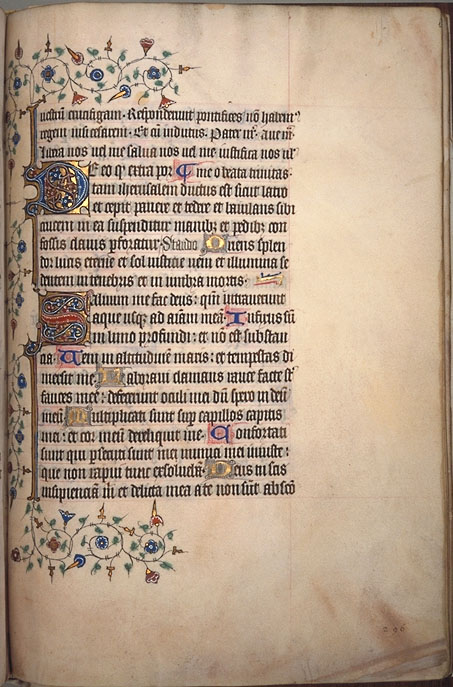 uestrū crucifigam. Responderunt pontifices nō habem᷒
regem nisi cesarem. Et cū indutis. Pater nr̄. aue m̄.
libera nos uel me salua nos uel me iustifica nos ul̄
De eo qꝫ extra por me o beata trinitas.
tam iherusalem ductus est sicut latro
et cepit pauere et tedere et baiulans sibi
crucem in ea suspenditur manibꝫ et pedibꝫ con
fossus clauis pforatur. Oriens splen
dor lucis eterne et sol iustitie ueni et illumina se
dentem in tenebris et in umbra mortis.
Saluum me fac deus: qm̄ intrauerunt
aque usqꝫ ad aīam meā. Infixus sū
in limo profundi: et nō est substan
cia. Ueni in altitudinē maris: et tempestas di
mersit me. Laboraui clamans rauce facte sūt
fauces mee: defecerunt oculi mei dū spero in deū
meū. Multiplicati sunt sup capillos capitis
mei: et cor meū dereliquit me. Confortati
sunt qui psecuti sunt me inimici mei iniuste:
que non rapui tunc exsoluebā. Deus tu scis
insipienciā m̄ et delicta mea a te non sūt absco